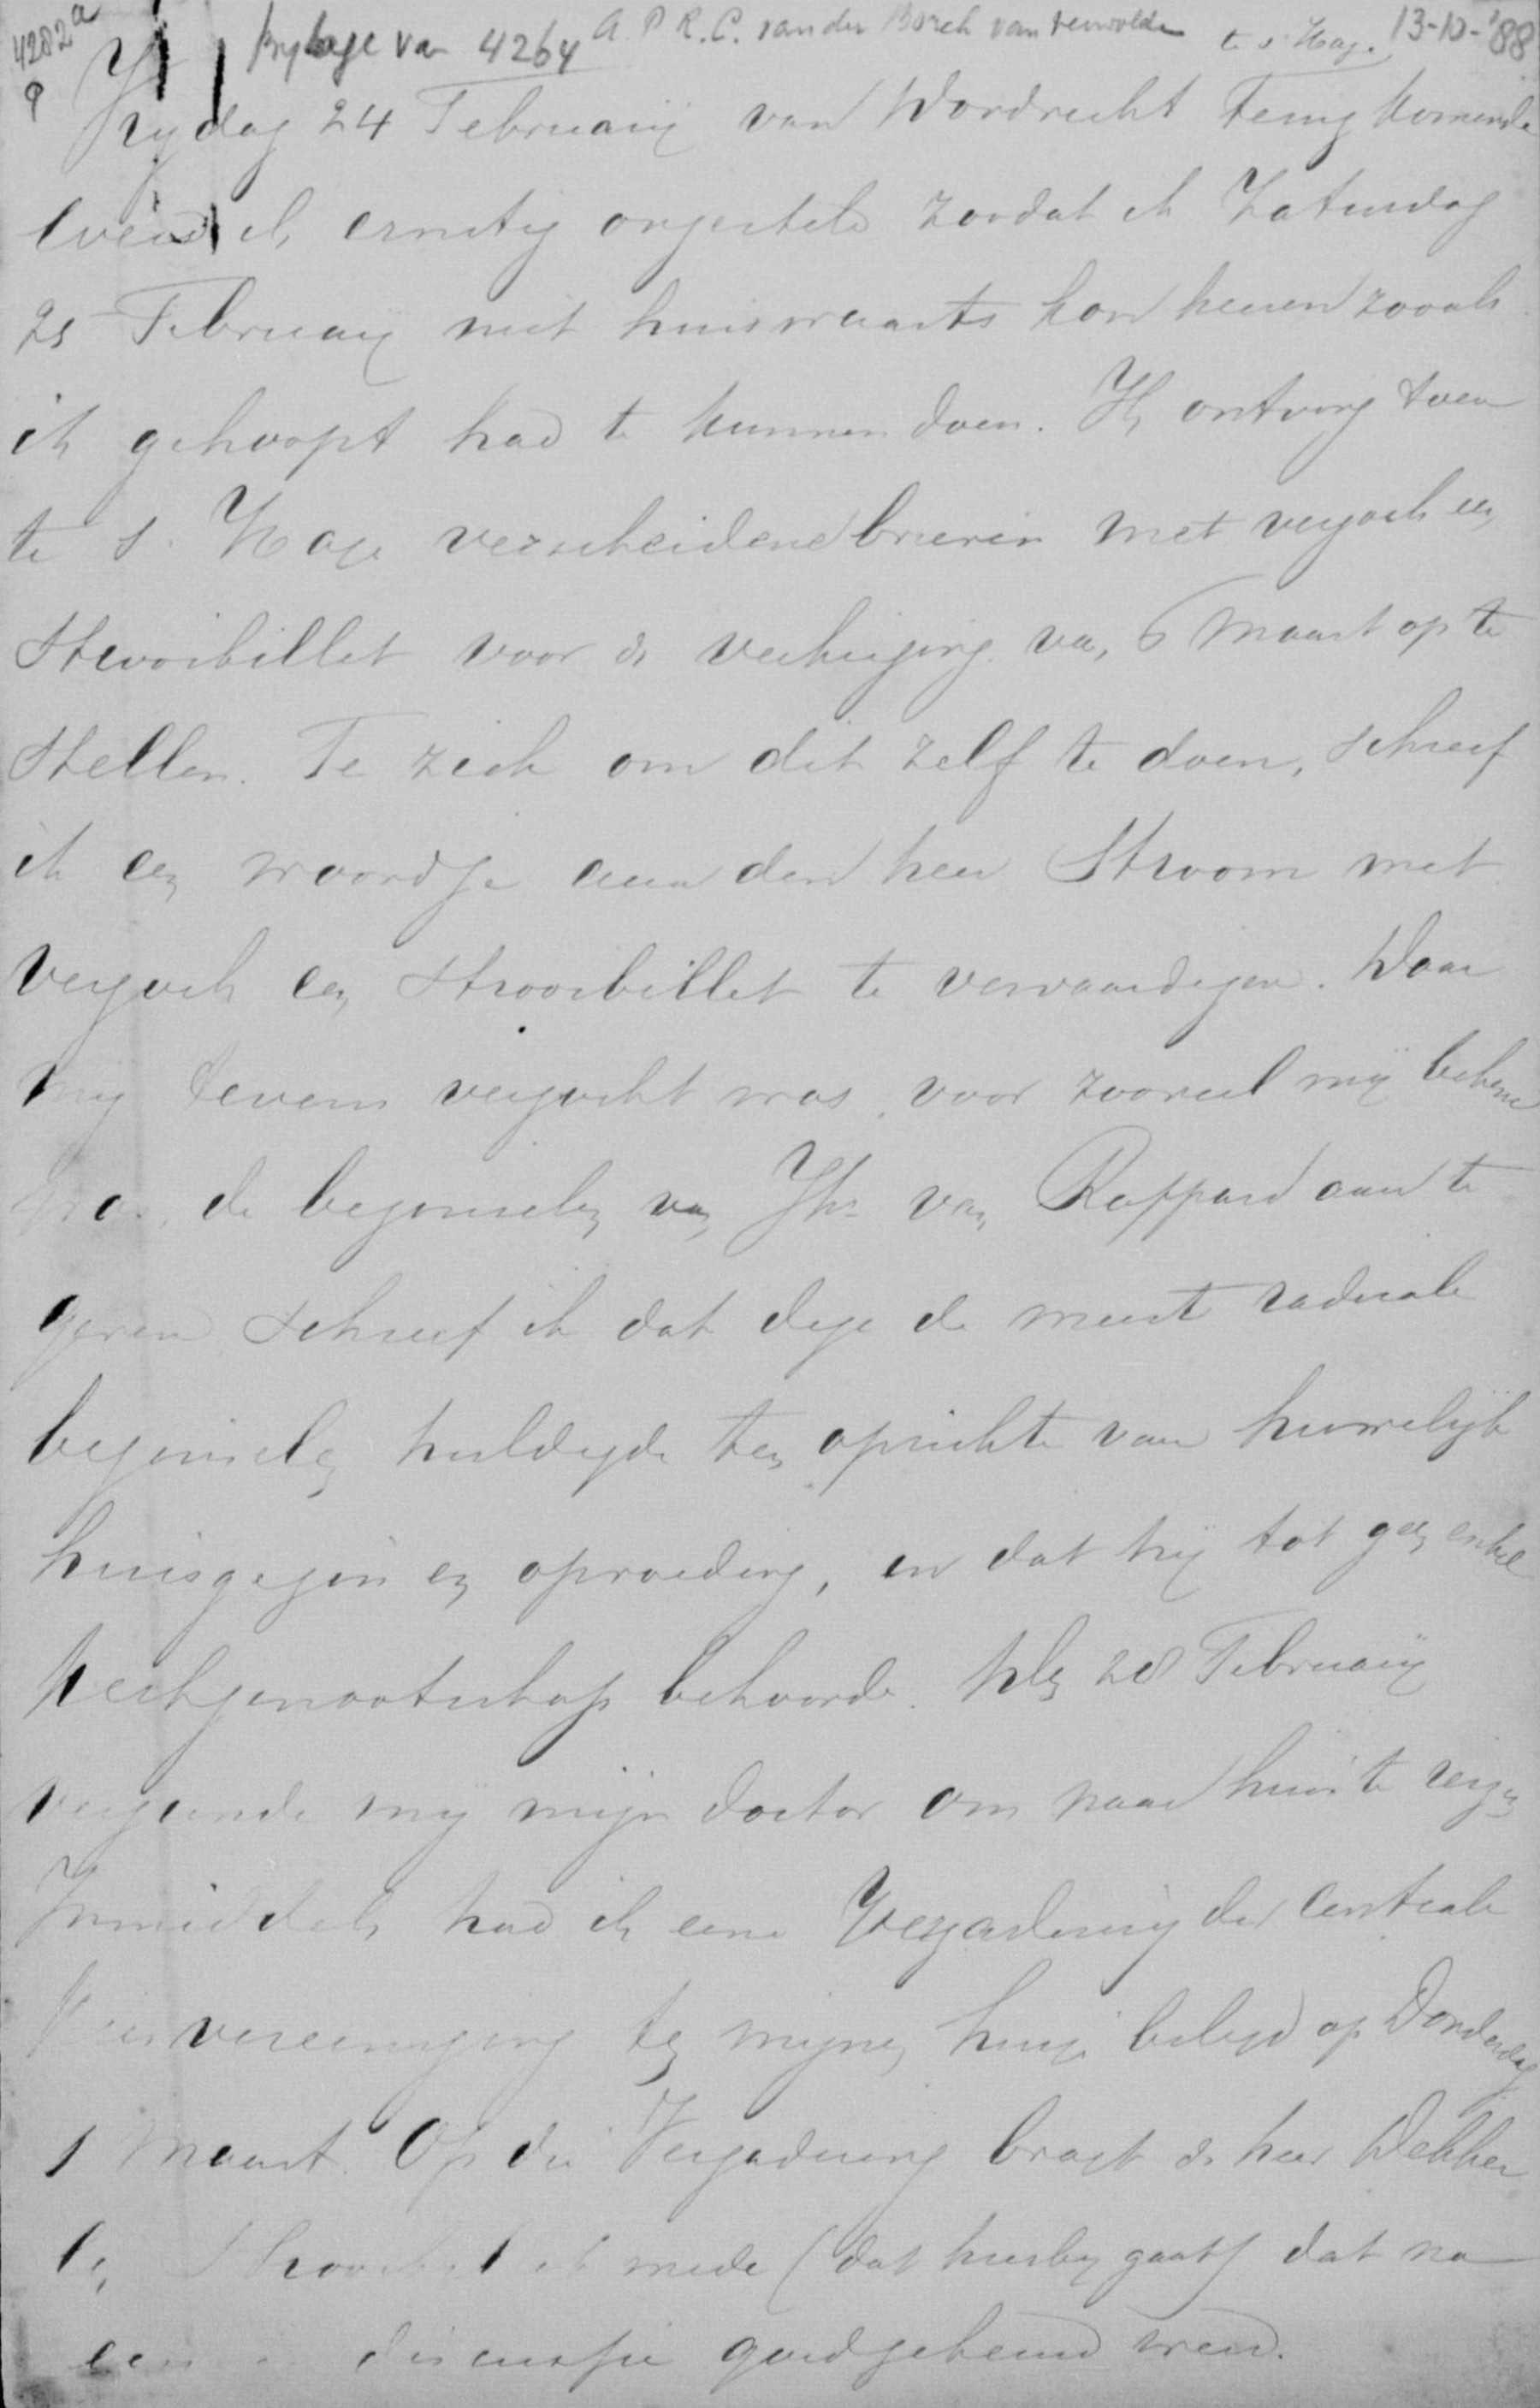 4282a
Bijlage van 4264 A. P. R. C. van der Borch van Verwolde te s Hage. 13-10-'88
Vrydag 24 Februarij van Dordrecht terug komende
werd ik ernstig ongesteld zoodat ik Zaturdag
25 Februarij niet huiswaarts kon keeren zooals
ik gehoopt had te kunnen doen. Ik ontving toen
te s. Hage verscheidene brieven met verzoek een
Strooibillet voor de verkiezing van 6 Maart op te
Stellen. Te ziek om dit zelf te doen, schreef
ik een woordje aan den heer Stroom met
verzoek een Strooibillet te vervaardigen. Daar
mij tevens verzocht was voor zooveel mij bekend
was, de beginselen van Jhr van Rappard aan te
geven schreef ik dat deze de meest radicale
beginselen huldigde ten opzichte van huwelijk
huisgezin en opvoeding, en dat hij tot geen enkel
kerkgenootschap behoorde. den 28 Februarij
vergunde mij mijn doctor om naar huis te reizen
Inmiddels had ik eene Vergadering der centrale
Kiesvereeniging ten mijnen huize belegd op Donderdag
1 Maart. Op die Vergadering bragt de heer Dekker
een Strooibillet mede (dat hierbij gaat) dat na
eenige discussie goedgekeurd werd.